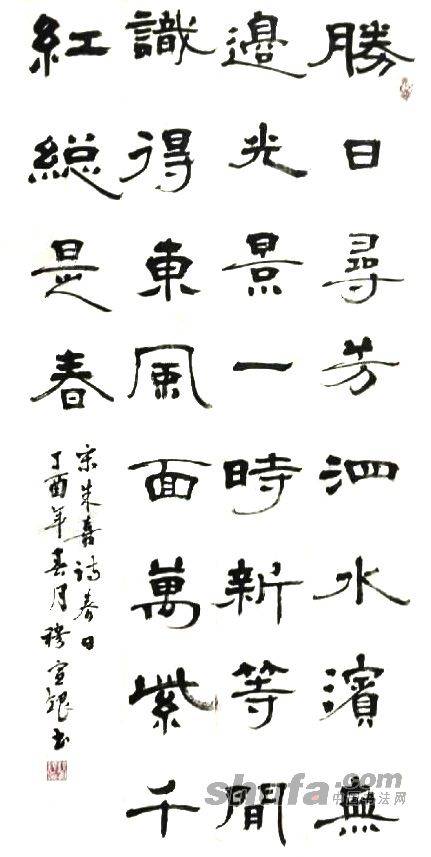 勝日尋芳泗水濱無
邊光景一時新等閒
識得東風面萬紫千
紅總是春
宋朱熹詩春日
丁酉年春月穆宣銀书
shufa.com
中国书法网